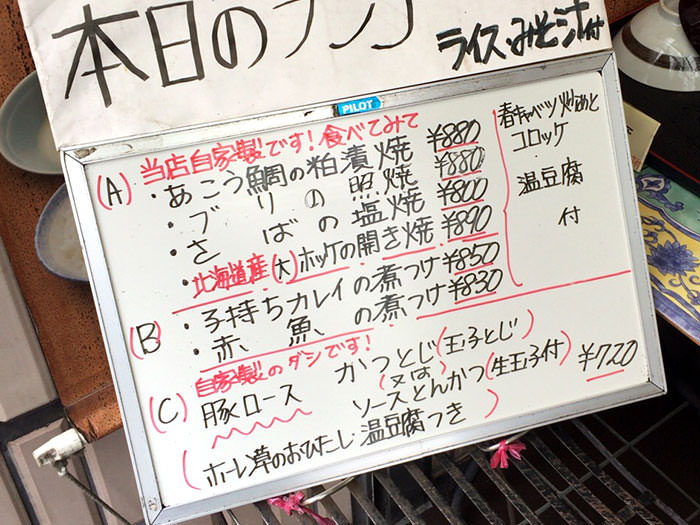 本日のランチ
ライス・みそ汁付
PILOT
当店自家製です！食べてみて
(A) ・あこう鯛の粕漬焼 ¥880
・ブリの照焼 ¥880
・さばの塩焼 ¥800
・北海道産(大)ホッケの開き焼 ¥890
春キャベツ炒めと
コロッケ
温豆腐
付
(B) ・子持ちカレイの煮つけ ¥850
・赤魚の煮つけ ¥830
自家製のダシです！
(C) 豚ロース かつとじ(玉子とじ)
(又は)
ソースとんかつ(生玉子付) ¥720
(ホーレン草のおひたし 温豆腐つき)